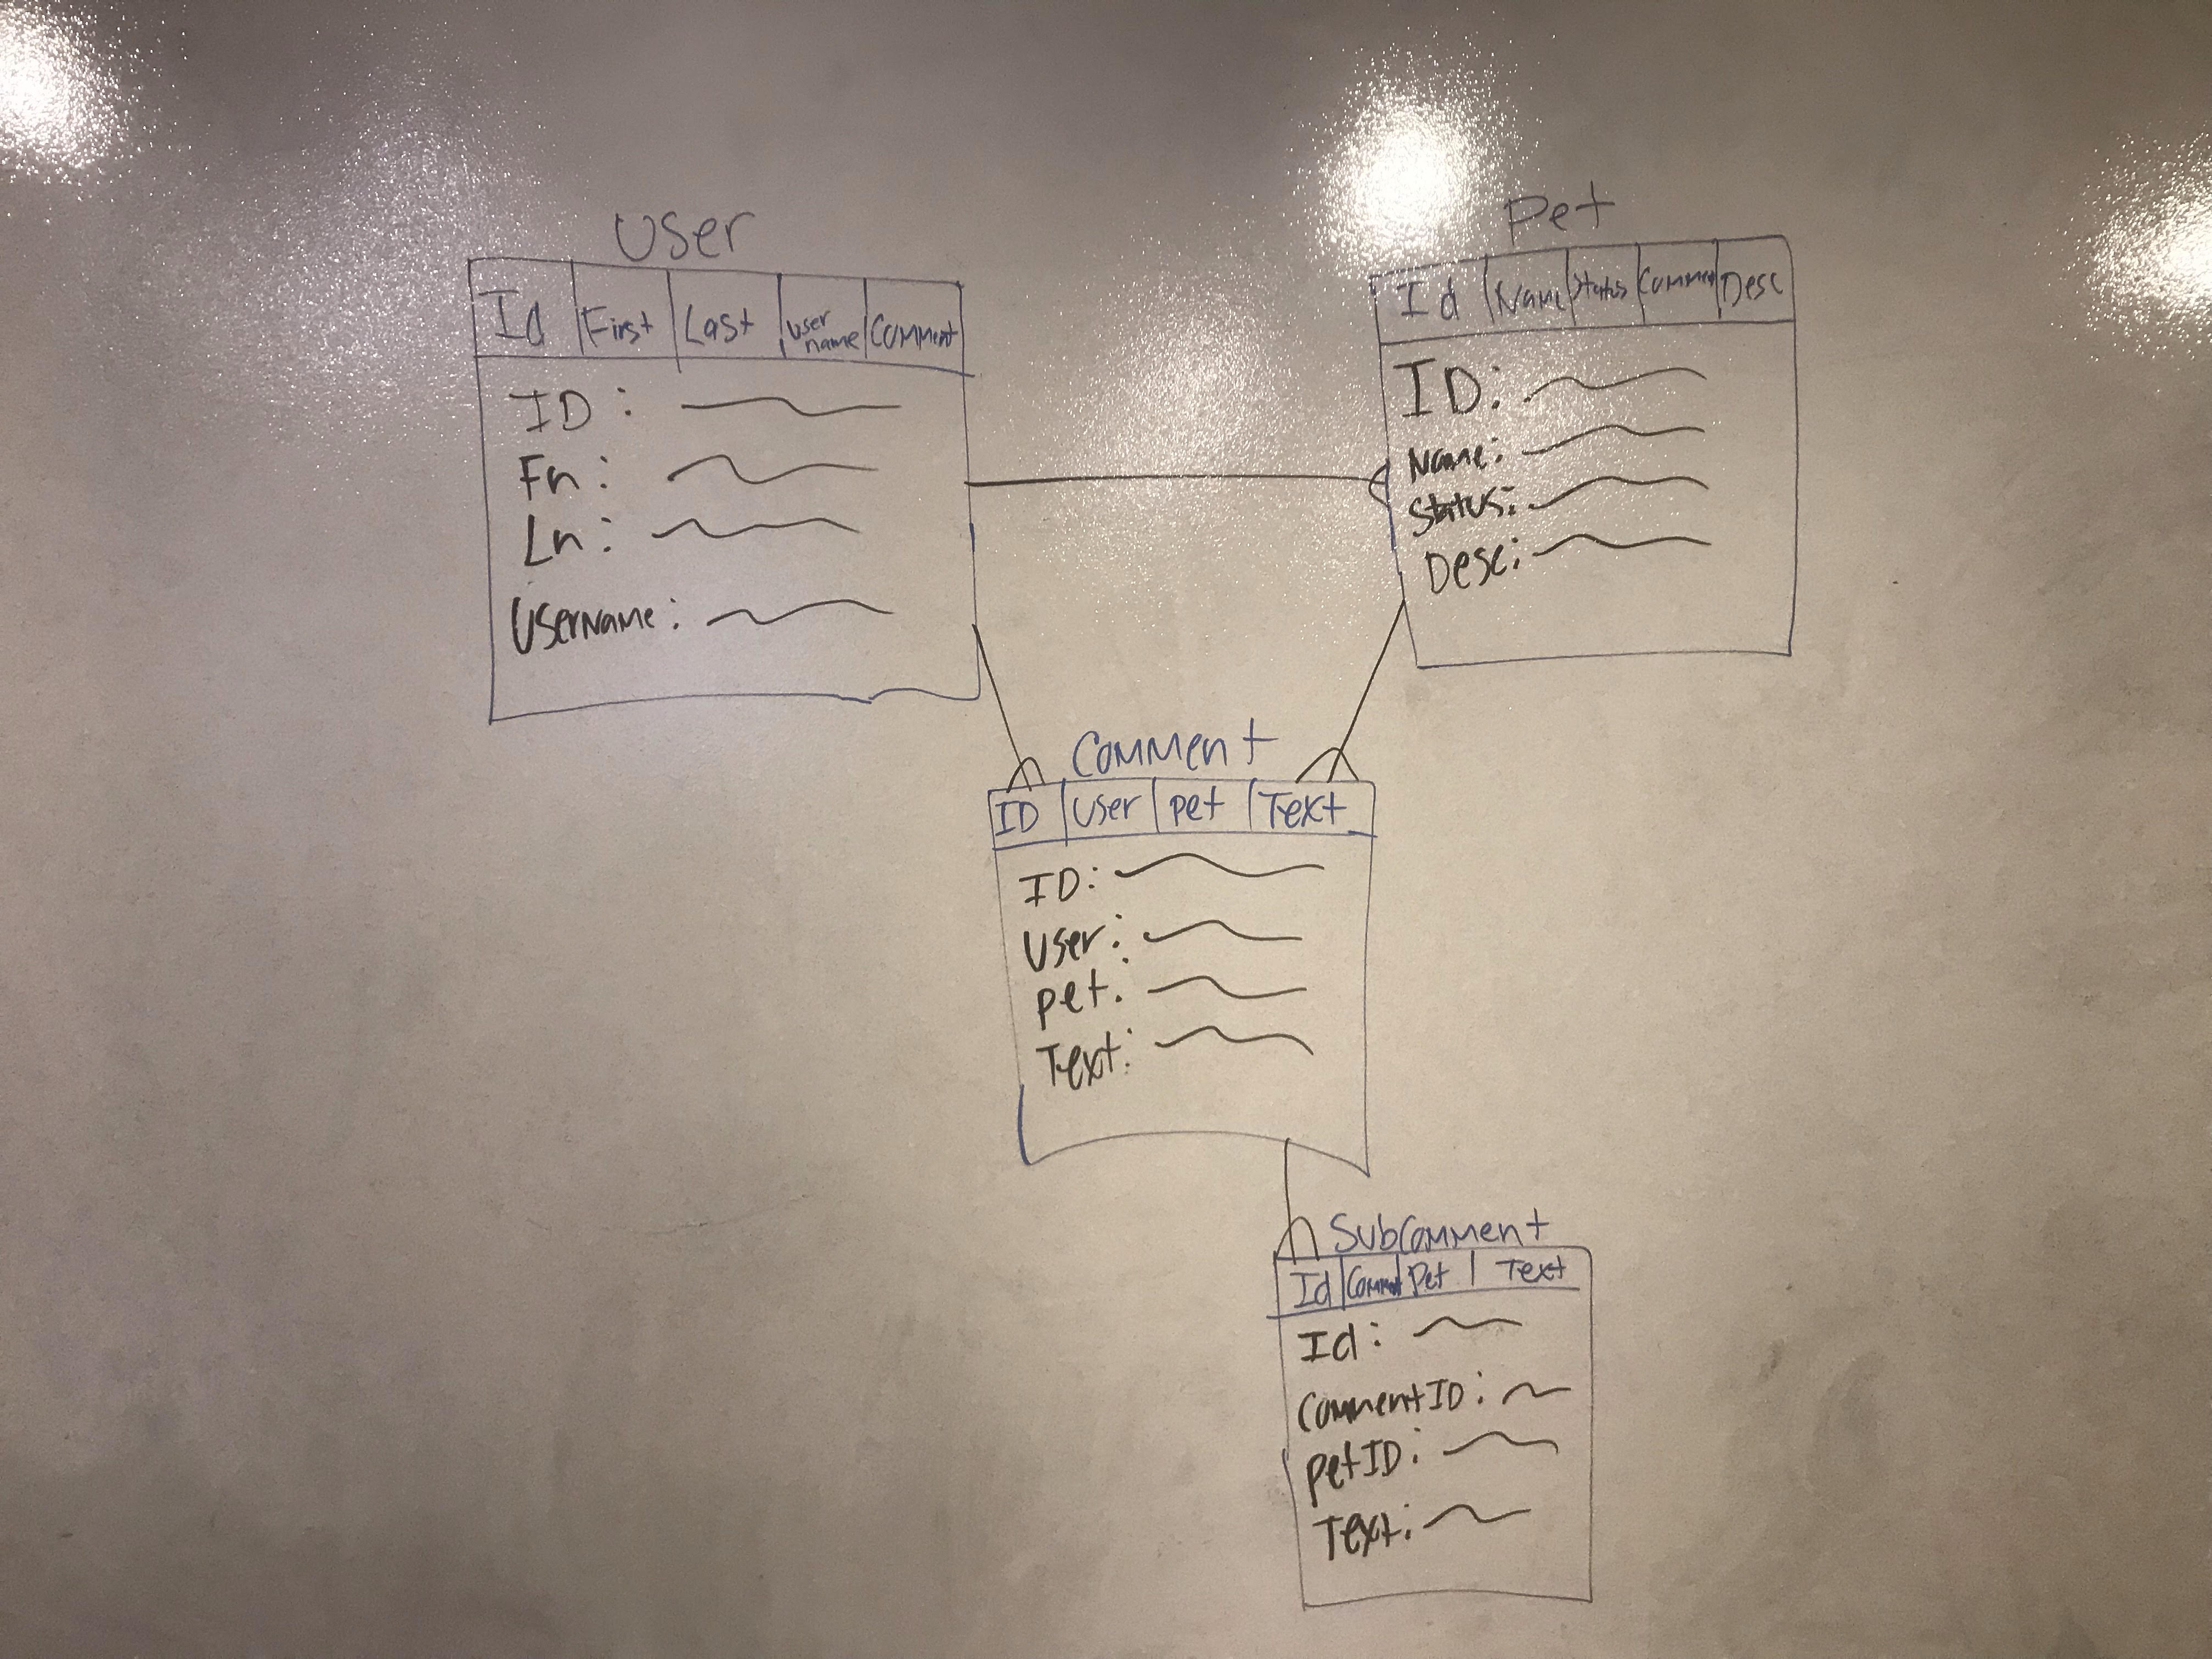 User
Id First Last User name Comment
ID:
Fn:
Ln:
Username:
Pet
Id Name Status Comment Desc
ID:
Name:
Status:
Desc:
Comment
ID User Pet Text
ID:
User:
Pet:
Text:
SubComment
Id Comment Pet Text
Id:
CommentID:
PetID:
Text: